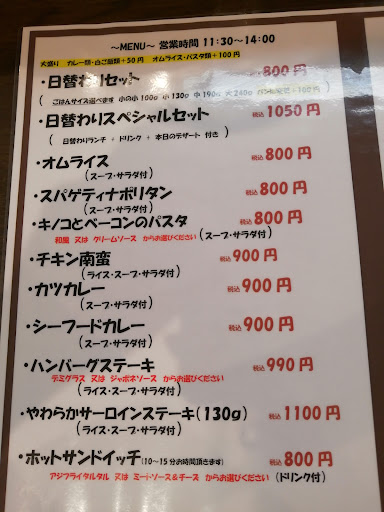 ~MENU~ 営業時間 11:30~14:00
大盛り カレー類・白ご飯類+50円 オムライス・パスタ類+100円
・日替わりセット 800円
( ごはんサイズ選べます 小の小100g 小130g 中190g 大240g +100円 )
・日替わりスペシャルセット 税込 1050円
( 日替わりランチ + ドリンク + 本日のデザート 付き )
・オムライス 税込 800円
(スープ・サラダ付)
・スパゲティナポリタン 税込 800円
(スープ・サラダ付)
・キノコとベーコンのパスタ 税込 800円
和風 又は クリームソース からお選びください (スープ・サラダ付)
・チキン南蛮 税込 900円
(ライス・スープ・サラダ付)
・カツカレー 税込 900円
(スープ・サラダ付)
・シーフードカレー 税込 900円
(スープ・サラダ付)
・ハンバーグステーキ 税込 990円
デミグラス 又は ジャポネソース からお選びください
(ライス・スープ・サラダ付)
・やわらかサーロインステーキ(130g) 税込 1100円
(ライス・スープ・サラダ付)
・ホットサンドイッチ(10~15分お時間頂きます) 税込 800円
アジフライタルタル 又は ミートソース&チーズ からお選びください (ドリンク付)